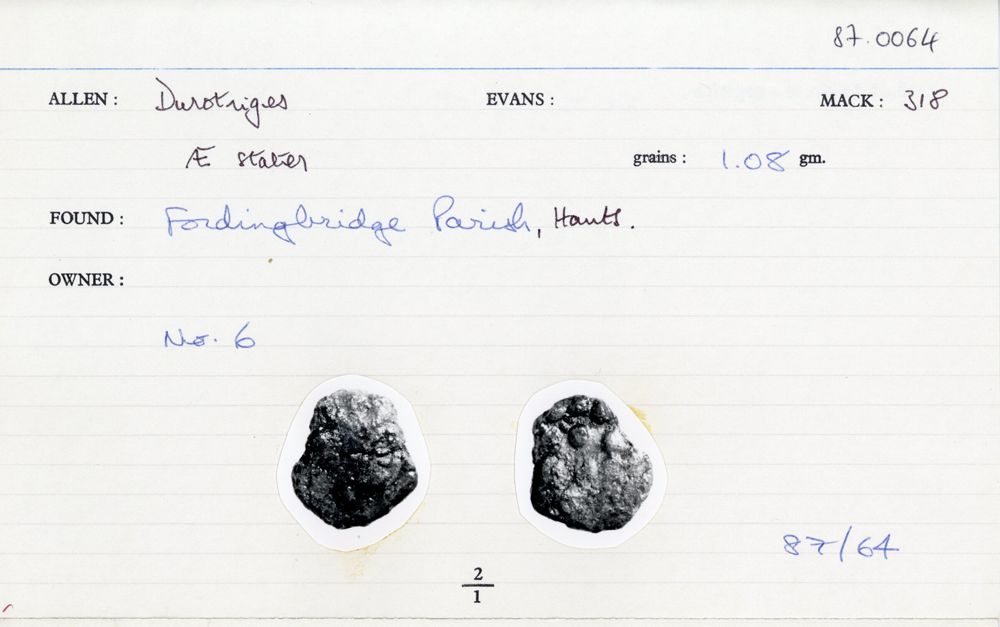 87.0064
ALLEN : Durotriges EVANS : MACK : 318
Æ stater grains : 1.08 gm.
FOUND : Fordingbridge Parish, Hants.
OWNER :
No. 6
87/64
2
1